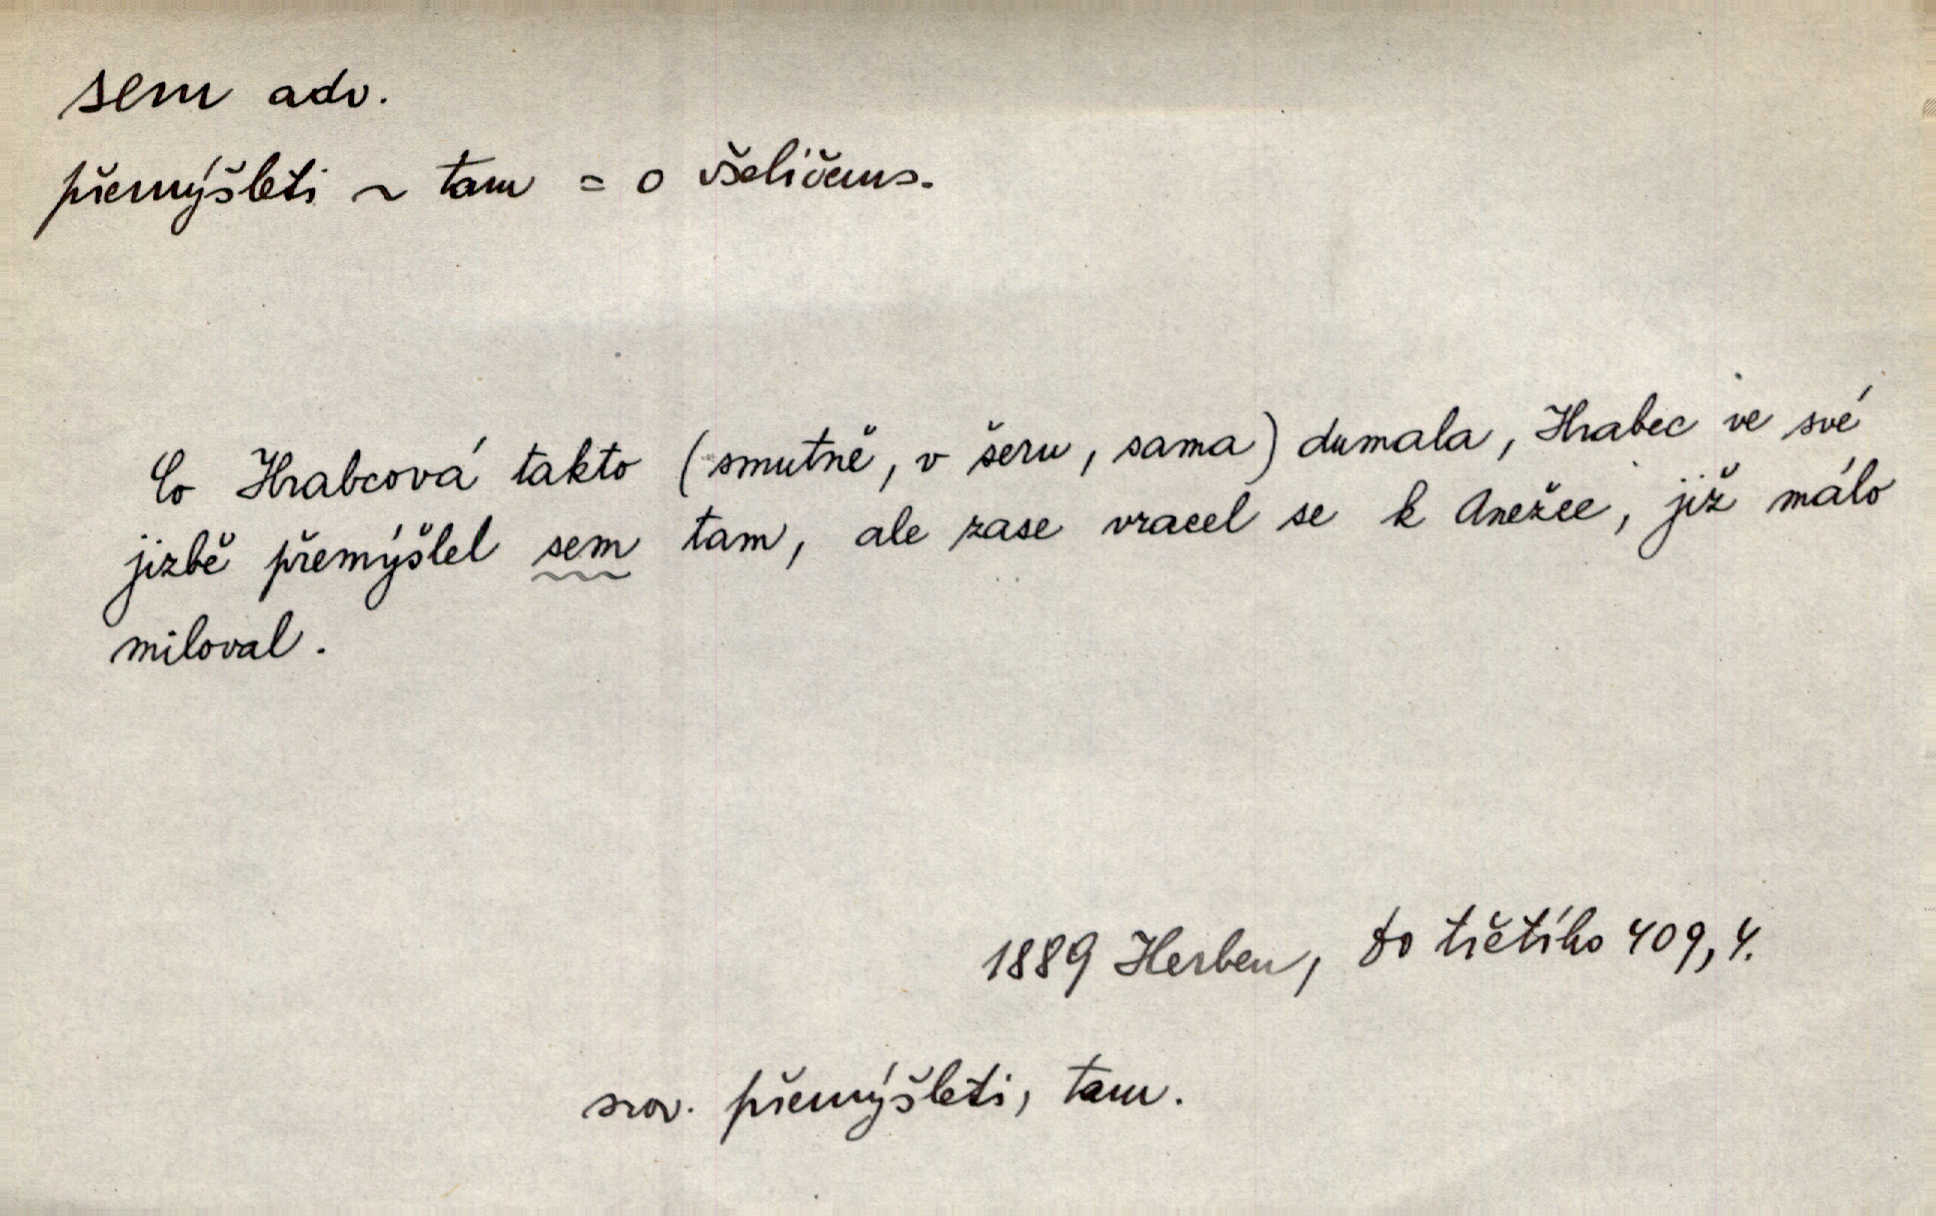 sem adv.
přemýšleti ~ tam = o všeličems.
Co Hrabcová takto (smutně, v šeru, sama) dumala, Hrabec ve své
jizbě přemýšlel sem tam, ale zase vracel se k Anežce, již málo
miloval.
1889 Herben, Do třetího 409,4.
srov. přemýšleti, tam.